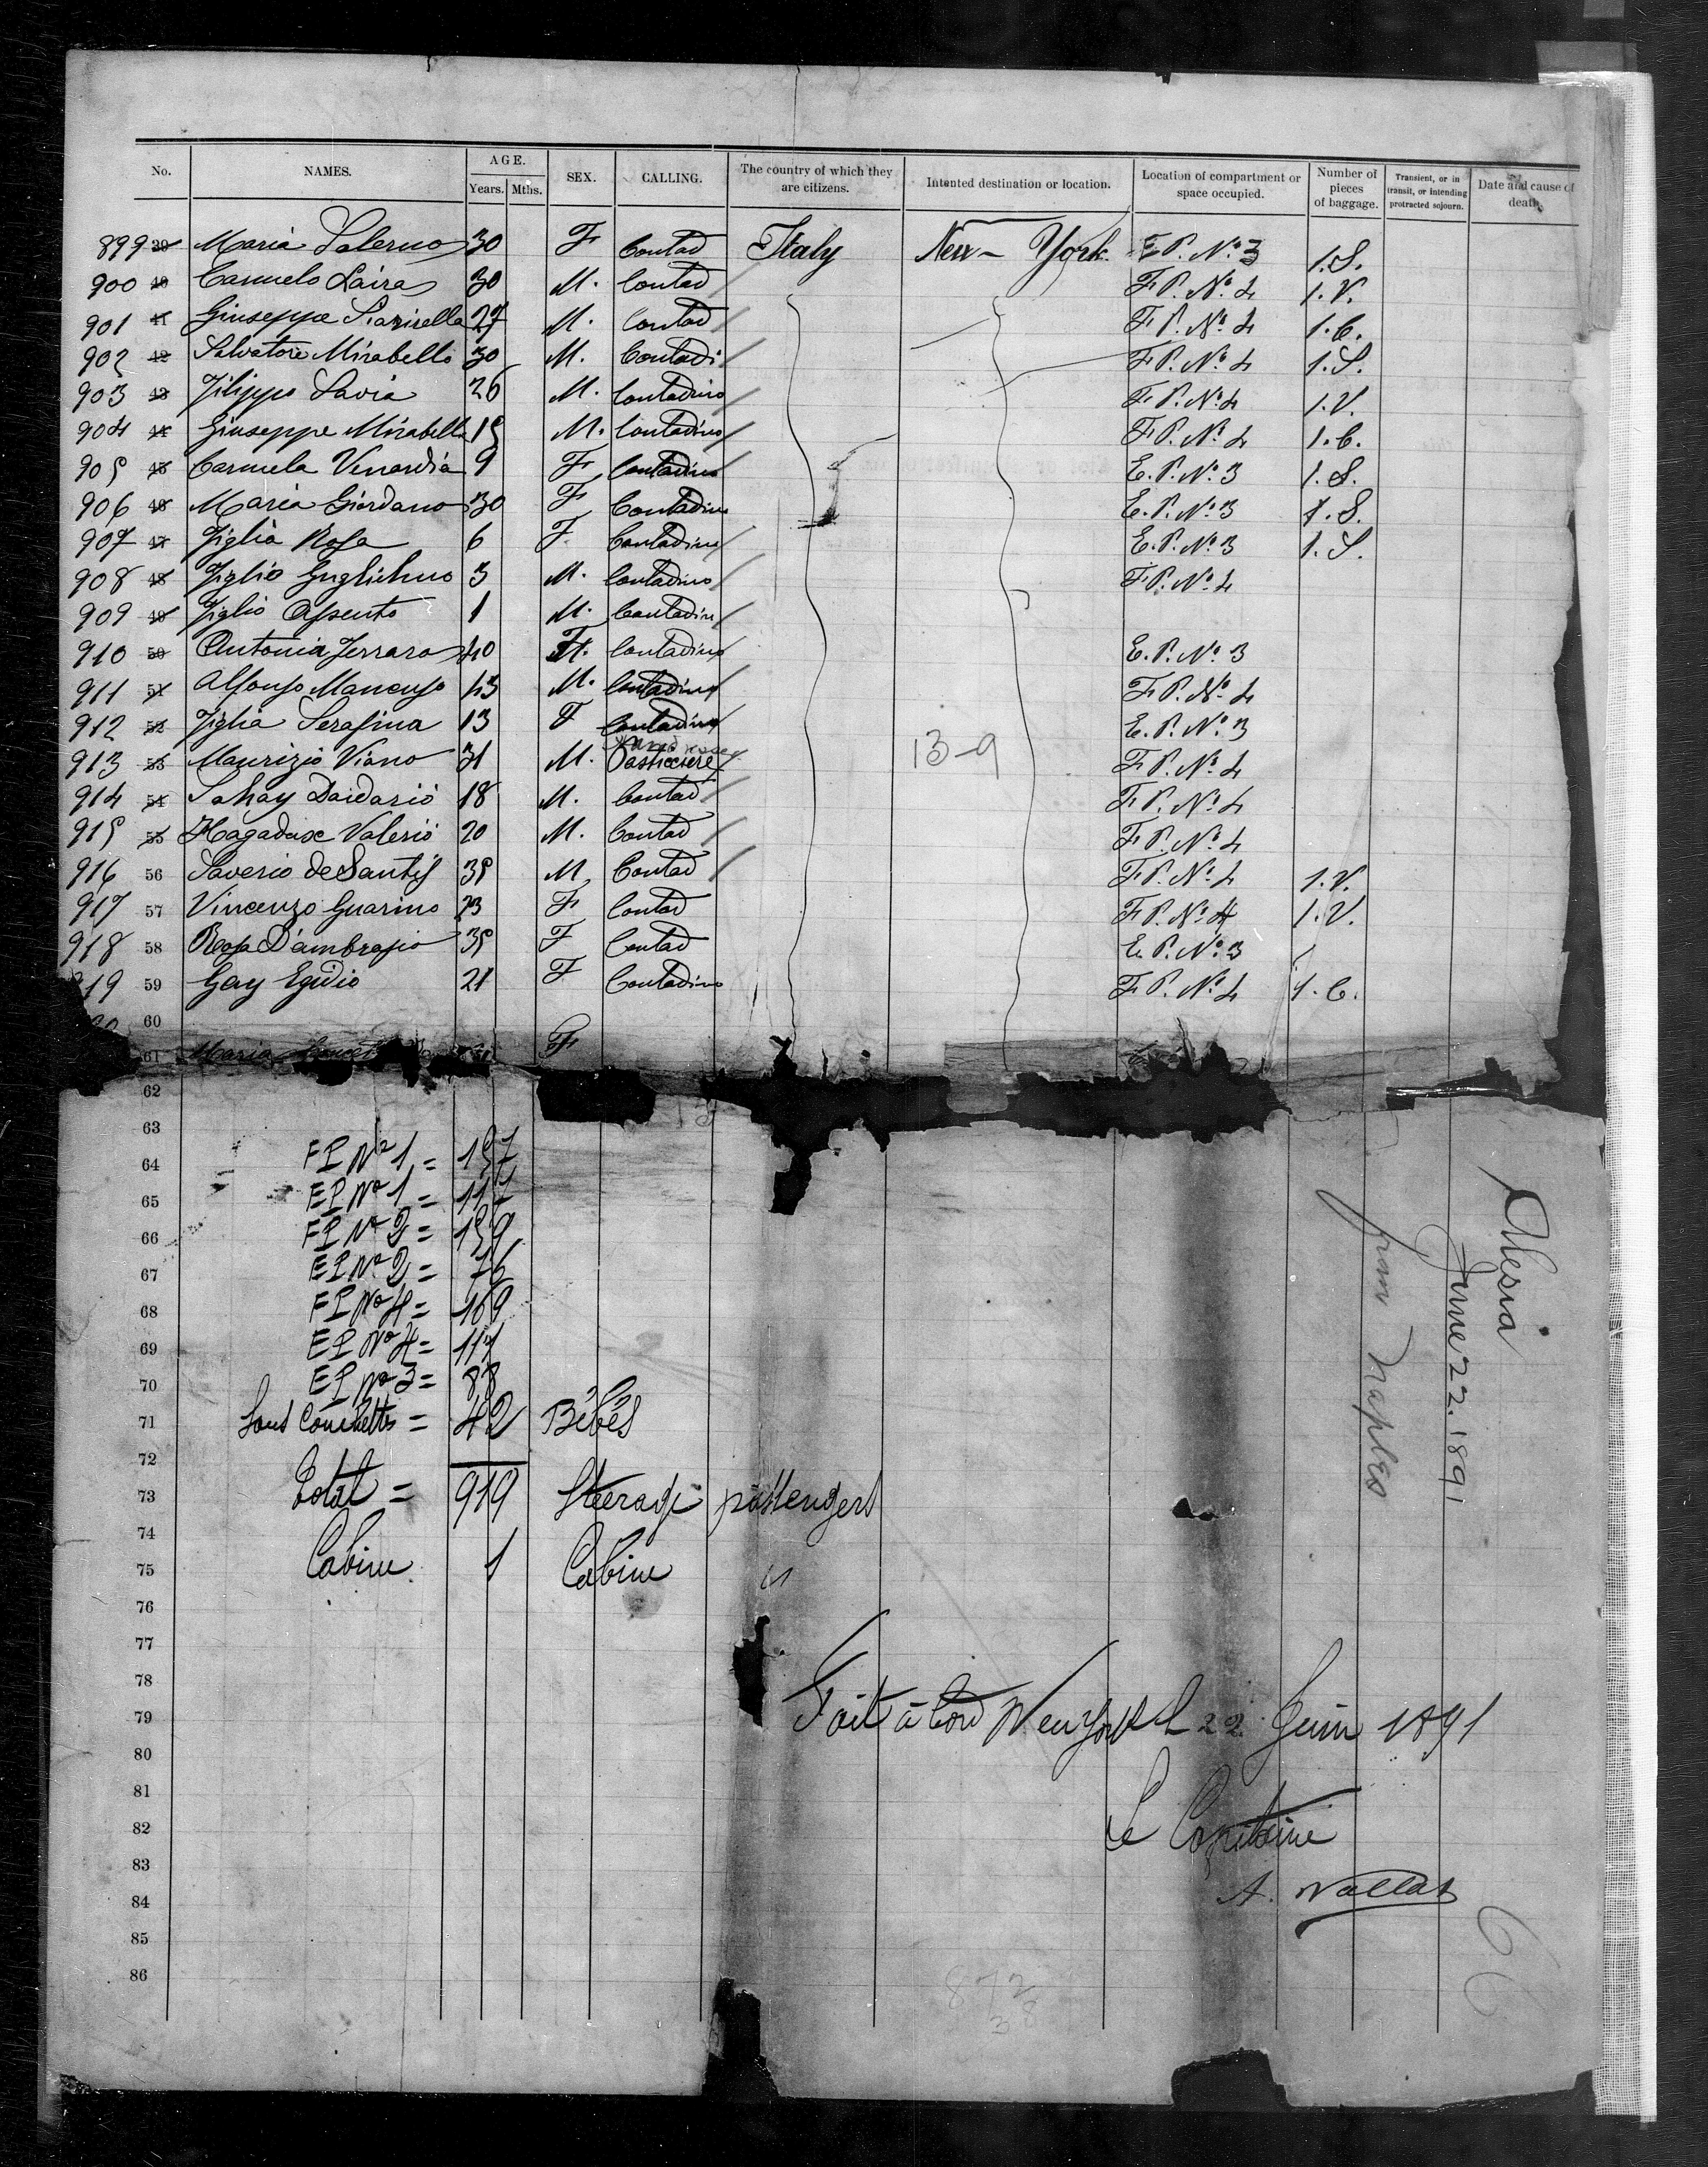 No. NAMES. AGE. Years. Mths. SEX. CALLING. The country of which they are citizens. Intented destination or location. Location of compartment or space occupied. Number of pieces of baggage. Transient, or in transit, or intending protracted sojourn. Date and cause of death.
899 39 Maria Salerno 30 F Contad Italy New-York E P. Nº 3 1. S.
900 40 Carmelo Laira 30 M. Contad F P. Nº 4 1. V.
901 41 Giuseppe 27 M. Contad F P. Nº 4 1. C.
902 42 Salvatore Mirabello 30 M. Contadi F P. Nº 4 1. S.
903 43 Filippo Savia 26 M. Contadino F P. Nº 4 1. V.
904 44 Giuseppe Mirabella 15 M. Contadino F P. Nº 4 1. C.
905 45 Carmela Venardia 9 F Contadino E. P. Nº 3 1. S.
906 46 Maria Giordano 30 F Contadino E. P. Nº 3 1. S.
907 47 Figlia Rosa 6 F. Contadino E. P. Nº 3 1. S.
908 48 Figlio Guglielmo 3 M. Contadino F P. Nº 4
909 49 Figlio 1 M. Contadin
910 50 Antonia Ferraro 40 F. Contadino E. P. Nº 3
911 51 Alfonso Mancuso 43 M. Contadino F P. Nº 4
912 52 Figlia Serafina 13 F Contadino E. P. Nº 3
913 53 Maurizio Viano 31 M. Pasticciere 13-9 F P. Nº 4
914 54 Daidario 18 M. Contad F P. Nº 4
915 55 Valerio 20 M. Contad F P. Nº 4
916 56 Saverio de Santis 35 M. Contad F P. Nº 4 1. V.
917 57 Vincenzo Guarino 23 F Contad F P. Nº 4 1. V.
918 58 Rosa D'ambrosio 35 F Contad E. P. Nº 3
919 59 Gay Egidio 21 F Contadino F P. Nº 4 1. C.
60
61 Maria F
62
63
64 FP Nº 1 = 157
65 EP Nº 1 = 111
66 FP Nº 2 = 159
67 EP Nº 2 = 76
68 FP Nº 4 = 169
69 EP Nº 4 = 117
70 EP Nº 3 = 88
71 Sous Couchettes = 42 Bébés
72
73 Total = 919 Steerage passengers
74
75 Cabine 1 Cabine "
76
77
78
79 Fait à bord New York l 22 Juin 1891
80
81
82 Le Capitaine
83
84 A. Vallat
85
86
Alesia
June 22. 1891
from Naples
66
872
38